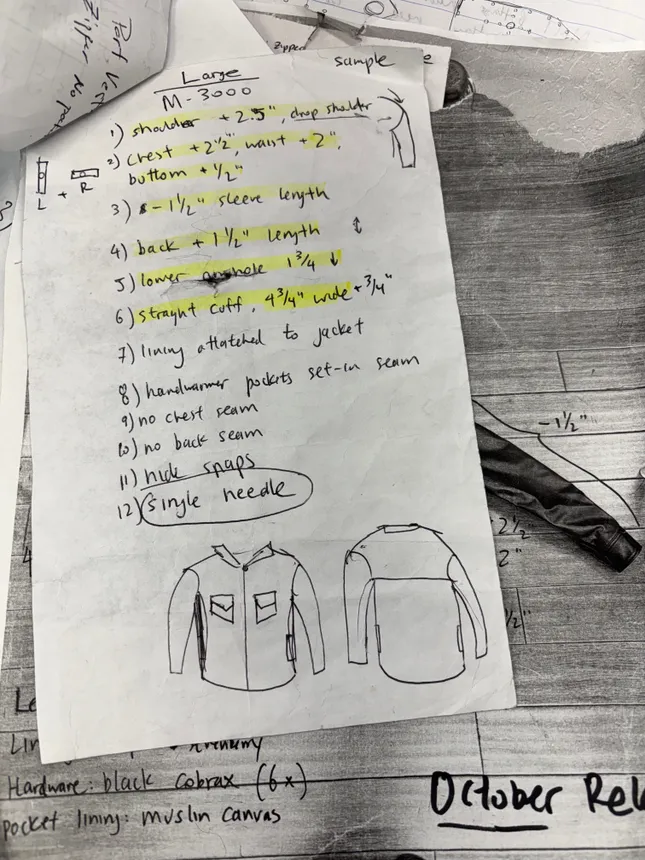 Zipper no
Zipper
sample
Large
M-3000
1) shoulder + 2.5", drop sholder
2) Chest + 2 1/2", waist + 2",
bottom + 1/2"
L + R
3) - 1 1/2" sleeve length
4) back + 1 1/2" length ↕
5) lower armhole 1 3/4 ↓
6) strayht cuff, 4 3/4" wide + 3/4"
7) lining attatched to jacket
8) handwarmer pockets set-in seam
9) no chest seam
10) no back seam
11) hide snaps
12) single needle
-1 1/2"
2 1/2"
2"
1/2"
Hardware: black Cobrax (6x)
pocket lining: muslin canvas
October Rel